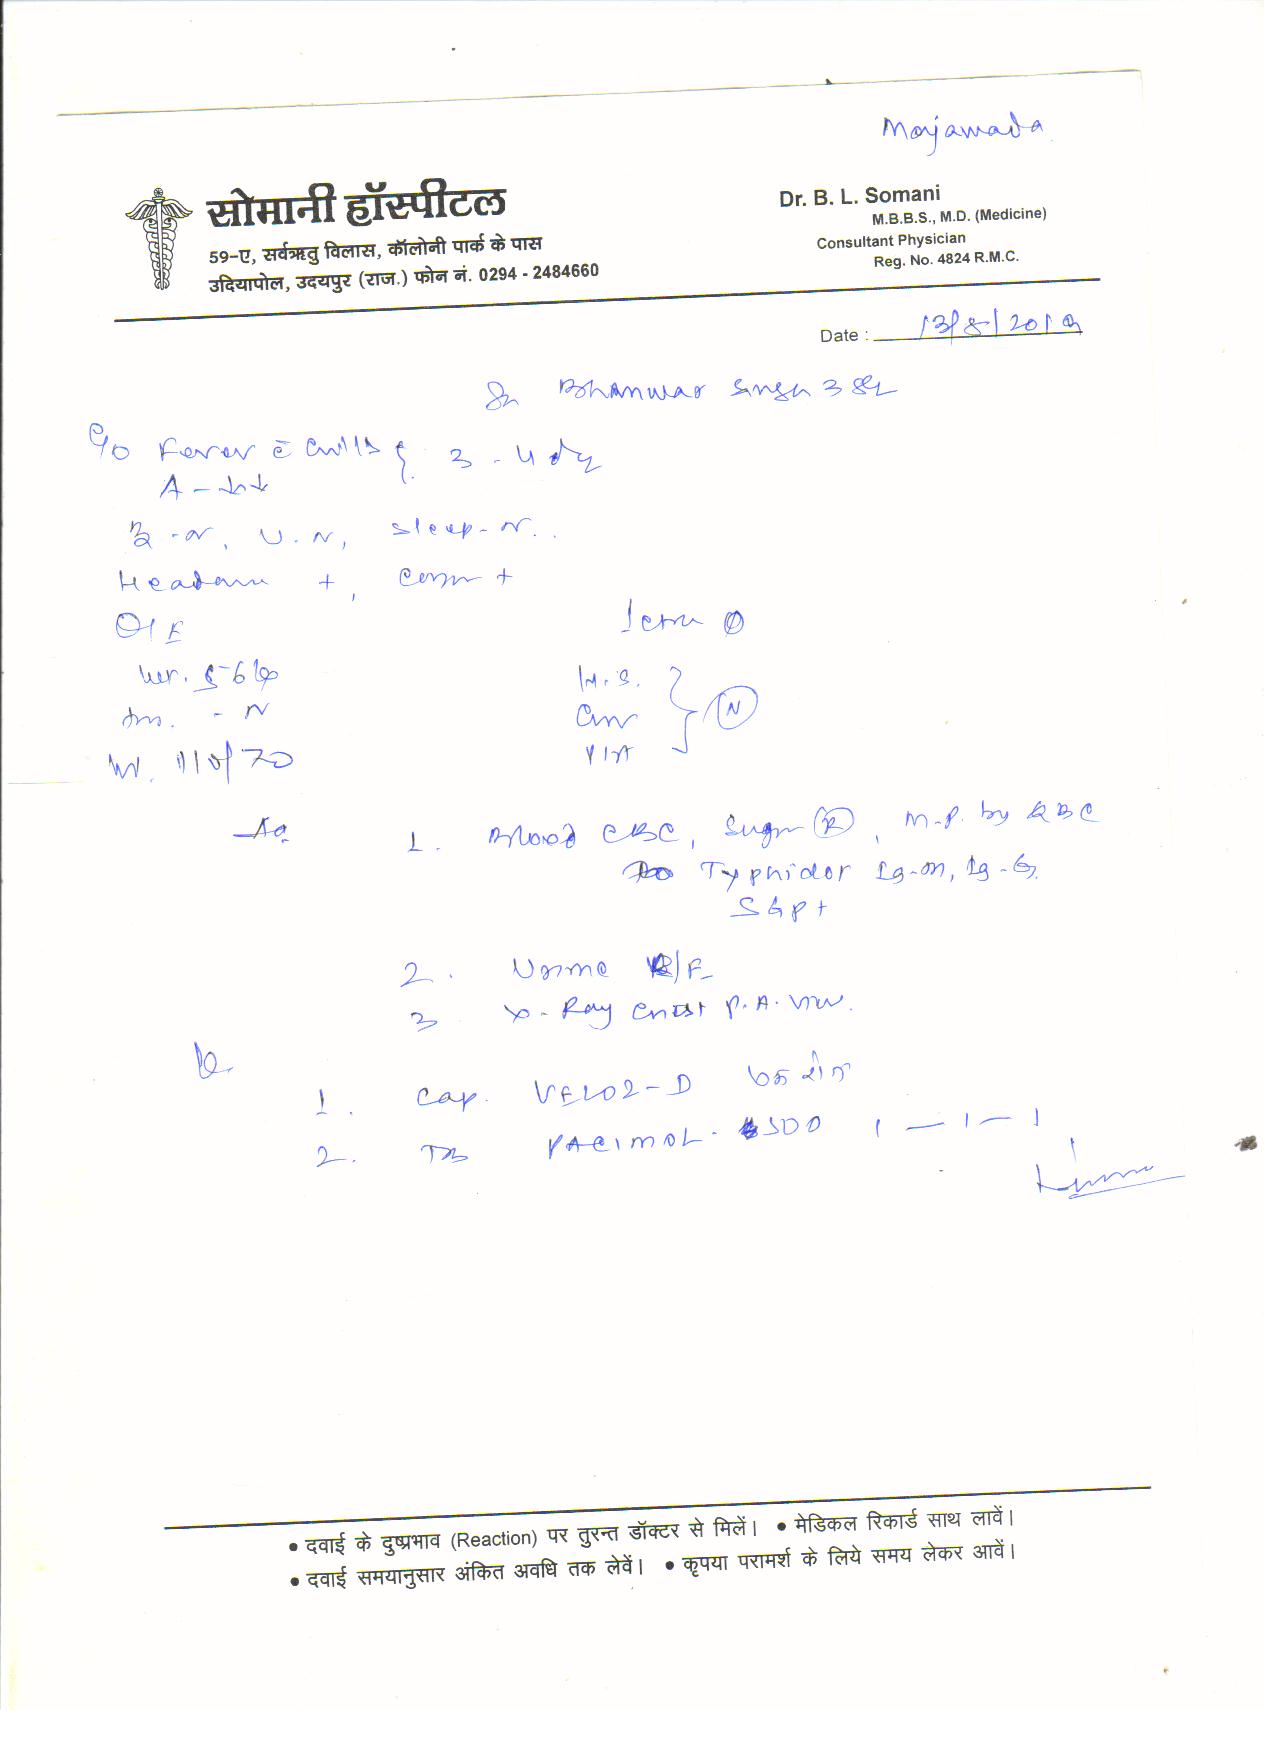 Morjawada
सोमानी हॉस्पीटल
59-ए, सर्वऋतु विलास, कॉलोनी पार्क के पास
उदियापोल, उदयपुर (राज.) फोन नं. 0294 - 2484660
Dr. B. L. Somani
M.B.B.S., M.D. (Medicine)
Consultant Physician
Reg. No. 4824 R.M.C.
Date : 13/8/2019
Bhanwar Singh
C/o Fever c̄ Chills } 3 - 4 dy
A -
B - N, U. N, Sleep - N.
Headache +, Cough +
O/E
- N
110/70
H.S.
} N
Adv. 1. Blood CBC, Sugar (R), M.P. by QBC
Typhidot Ig-M, Ig-G.
SGPT
2. Urine R/E
3 X-Ray Chest P.A. View.
1. Cap. VELOZ-D
2. Tab PACIMOL - 500 1 — 1 — 1
• दवाई के दुष्प्रभाव (Reaction) पर तुरन्त डॉक्टर से मिलें। • मेडिकल रिकार्ड साथ लावें।
• दवाई समयानुसार अंकित अवधि तक लेवें। • कृपया परामर्श के लिये समय लेकर आवें।